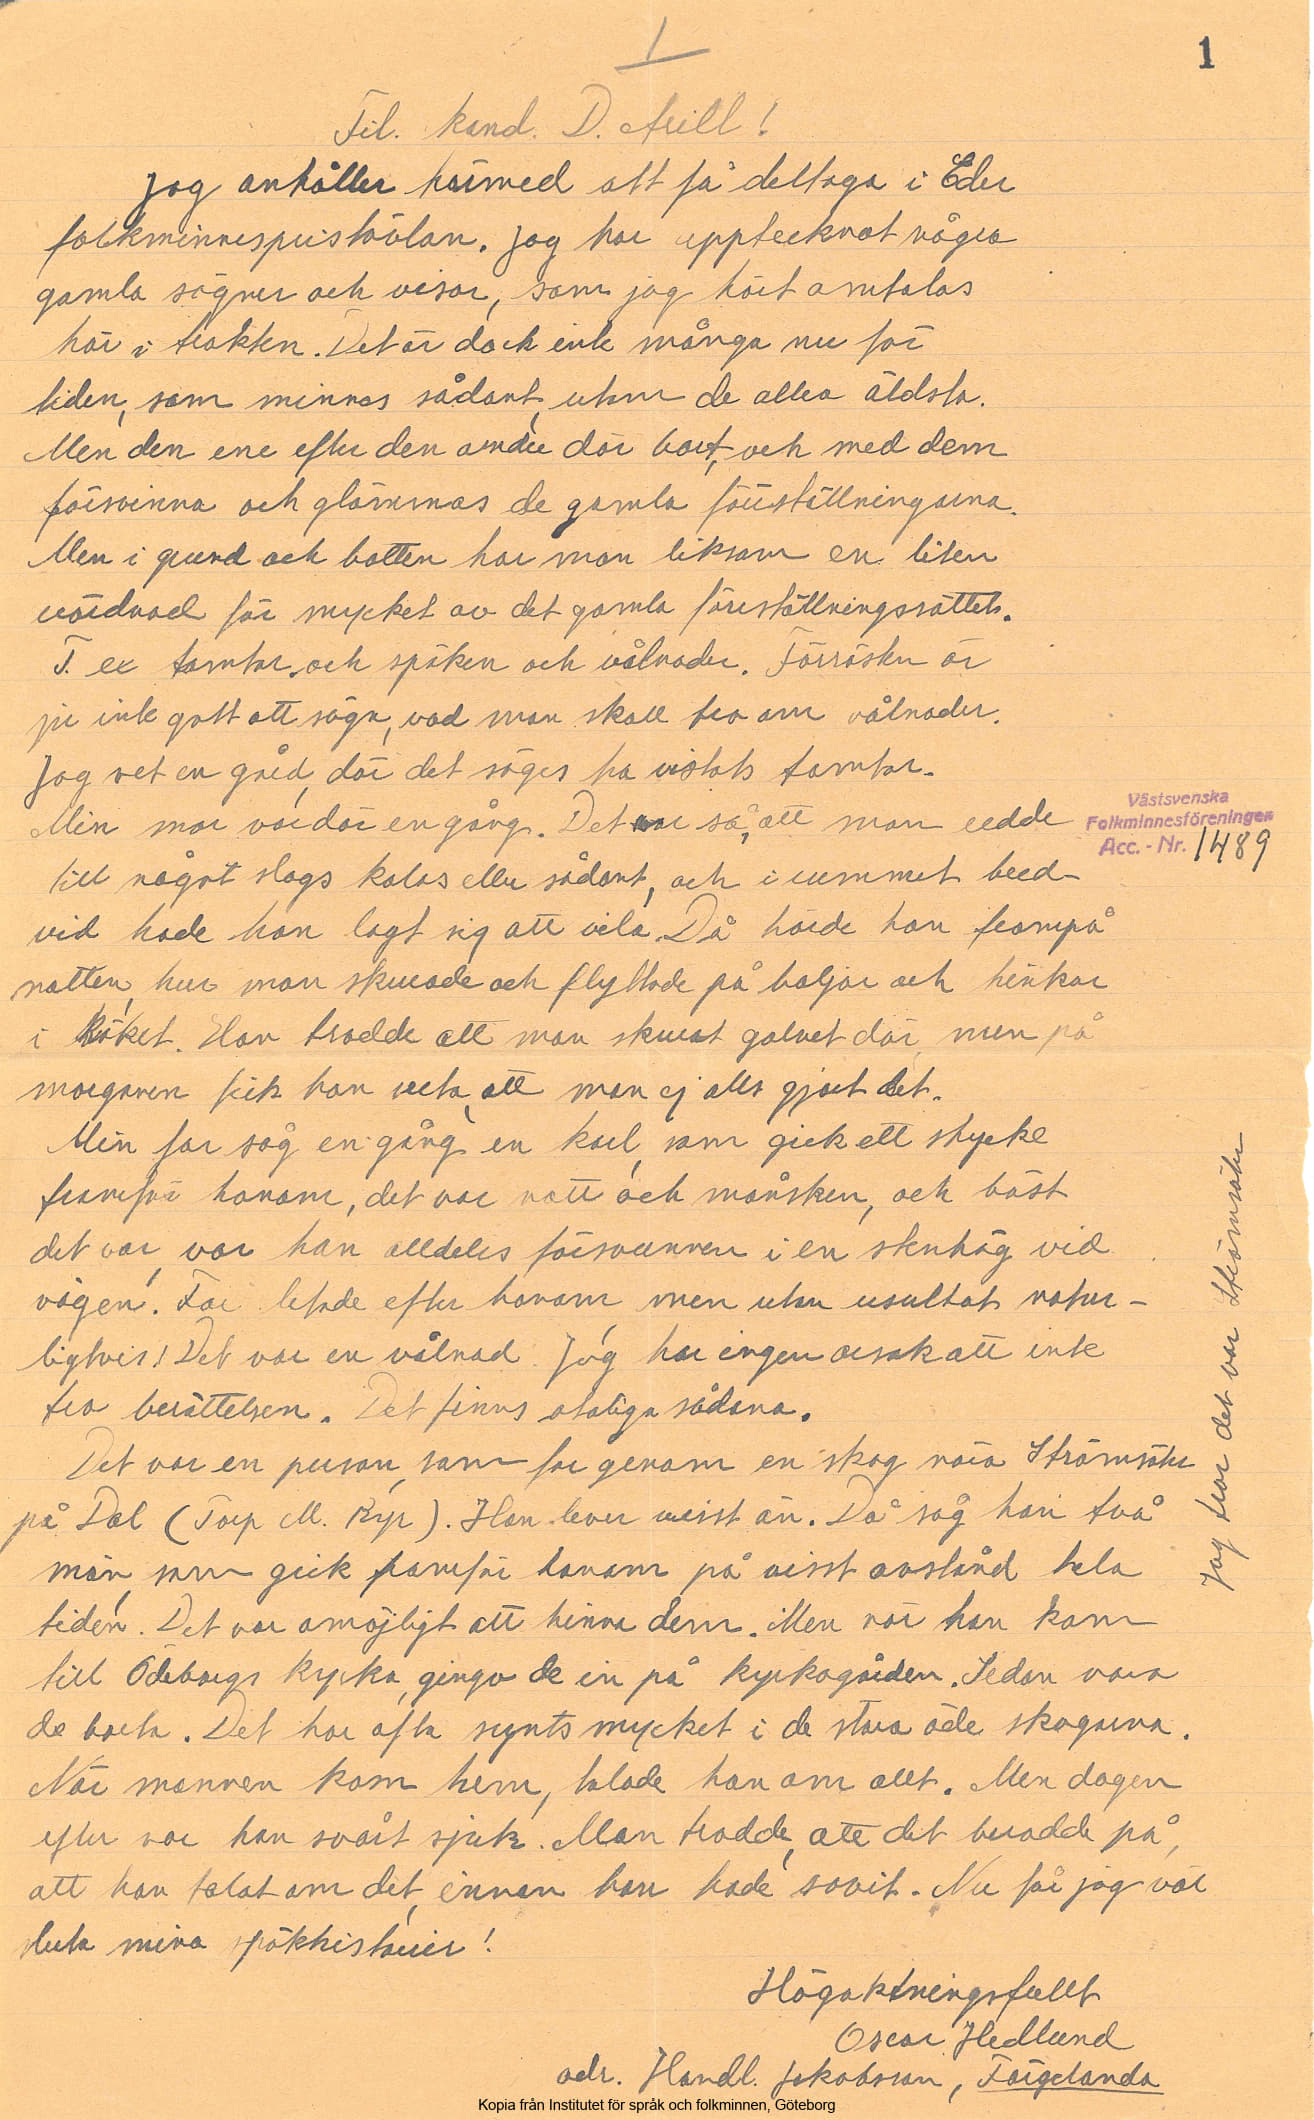 1
1
Fil. kand. D. Arill!
Jag anhåller härmed att få deltaga i Eder
folkminnespristävlan. Jag har upptecknat några
gamla sägner och visor, som jag hört omtalas
här i trakten. Det är dock inte många nu för
tiden, som minnas sådant, utom de allra äldsta.
Men den ene efter den andre dör bort, och med dem
försvinna och glömmas de gamla föreställningarna.
Men i grund och botten har man liksom en liten
vördnad för mycket av det gamla föreställningssättet.
T. ex tomtar och spöken och vålnader. Förresten är
ju inte gott att säga, vad man skall tro om vålnader.
Jag vet en gård, där det säges ha vistats tomtar.
Min mor var där en gång. Det var så, att man redde
till något slags kalas eller sådant, och i rummet bred-
vid hade hon lagt sig att vila. Då hörde hon frampå
natten, hur man skurade och flyttade på baljor och hinkar
i köket. Hon trodde att man skurat golvet där, men på
morgonen fick hon veta, att man ej alls gjort det.
Min far såg en gång en karl, som gick ett stycke
framför honom, det var natt och månsken, och bäst
det var, var han alldeles försvunnen i en stenhög vid
vägen. Far letade efter honom, men utan resultat natur-
ligtvis! Det var en vålnad. Jag har ingen orsak att inte
tro berättelsen. Det finns otaliga sådana.
Det var en person, som for genom en skog nära Strömsäter
på Dal (Torp M. Ryr). Han lever visst än. Då såg han två
män, som gick framför honom på visst avstånd hela
tiden. Det var omöjligt att hinna dem. Men när han kom
till Ödeborgs kyrka, gingo de in på kyrkogården. Sedan voro
de borta. Det har ofta synts mycket i de stora öde skogarna.
När mannen kom hem, talade han om allt. Men dagen
efter var han svårt sjuk. Man trodde, att det berodde på,
att han talat om det, innan han hade sovit. Nu får jag väl
sluta mina spökhistorier!
Högaktningsfullt
Oscar Hedlund
adr. Handl. Jakobsson, Färgelanda
Jag tror det var Strömsäter
Västsvenska
Folkminnesföreningen
Acc.-Nr. 1489
Kopia från Institutet för språk och folkminnen, Göteborg